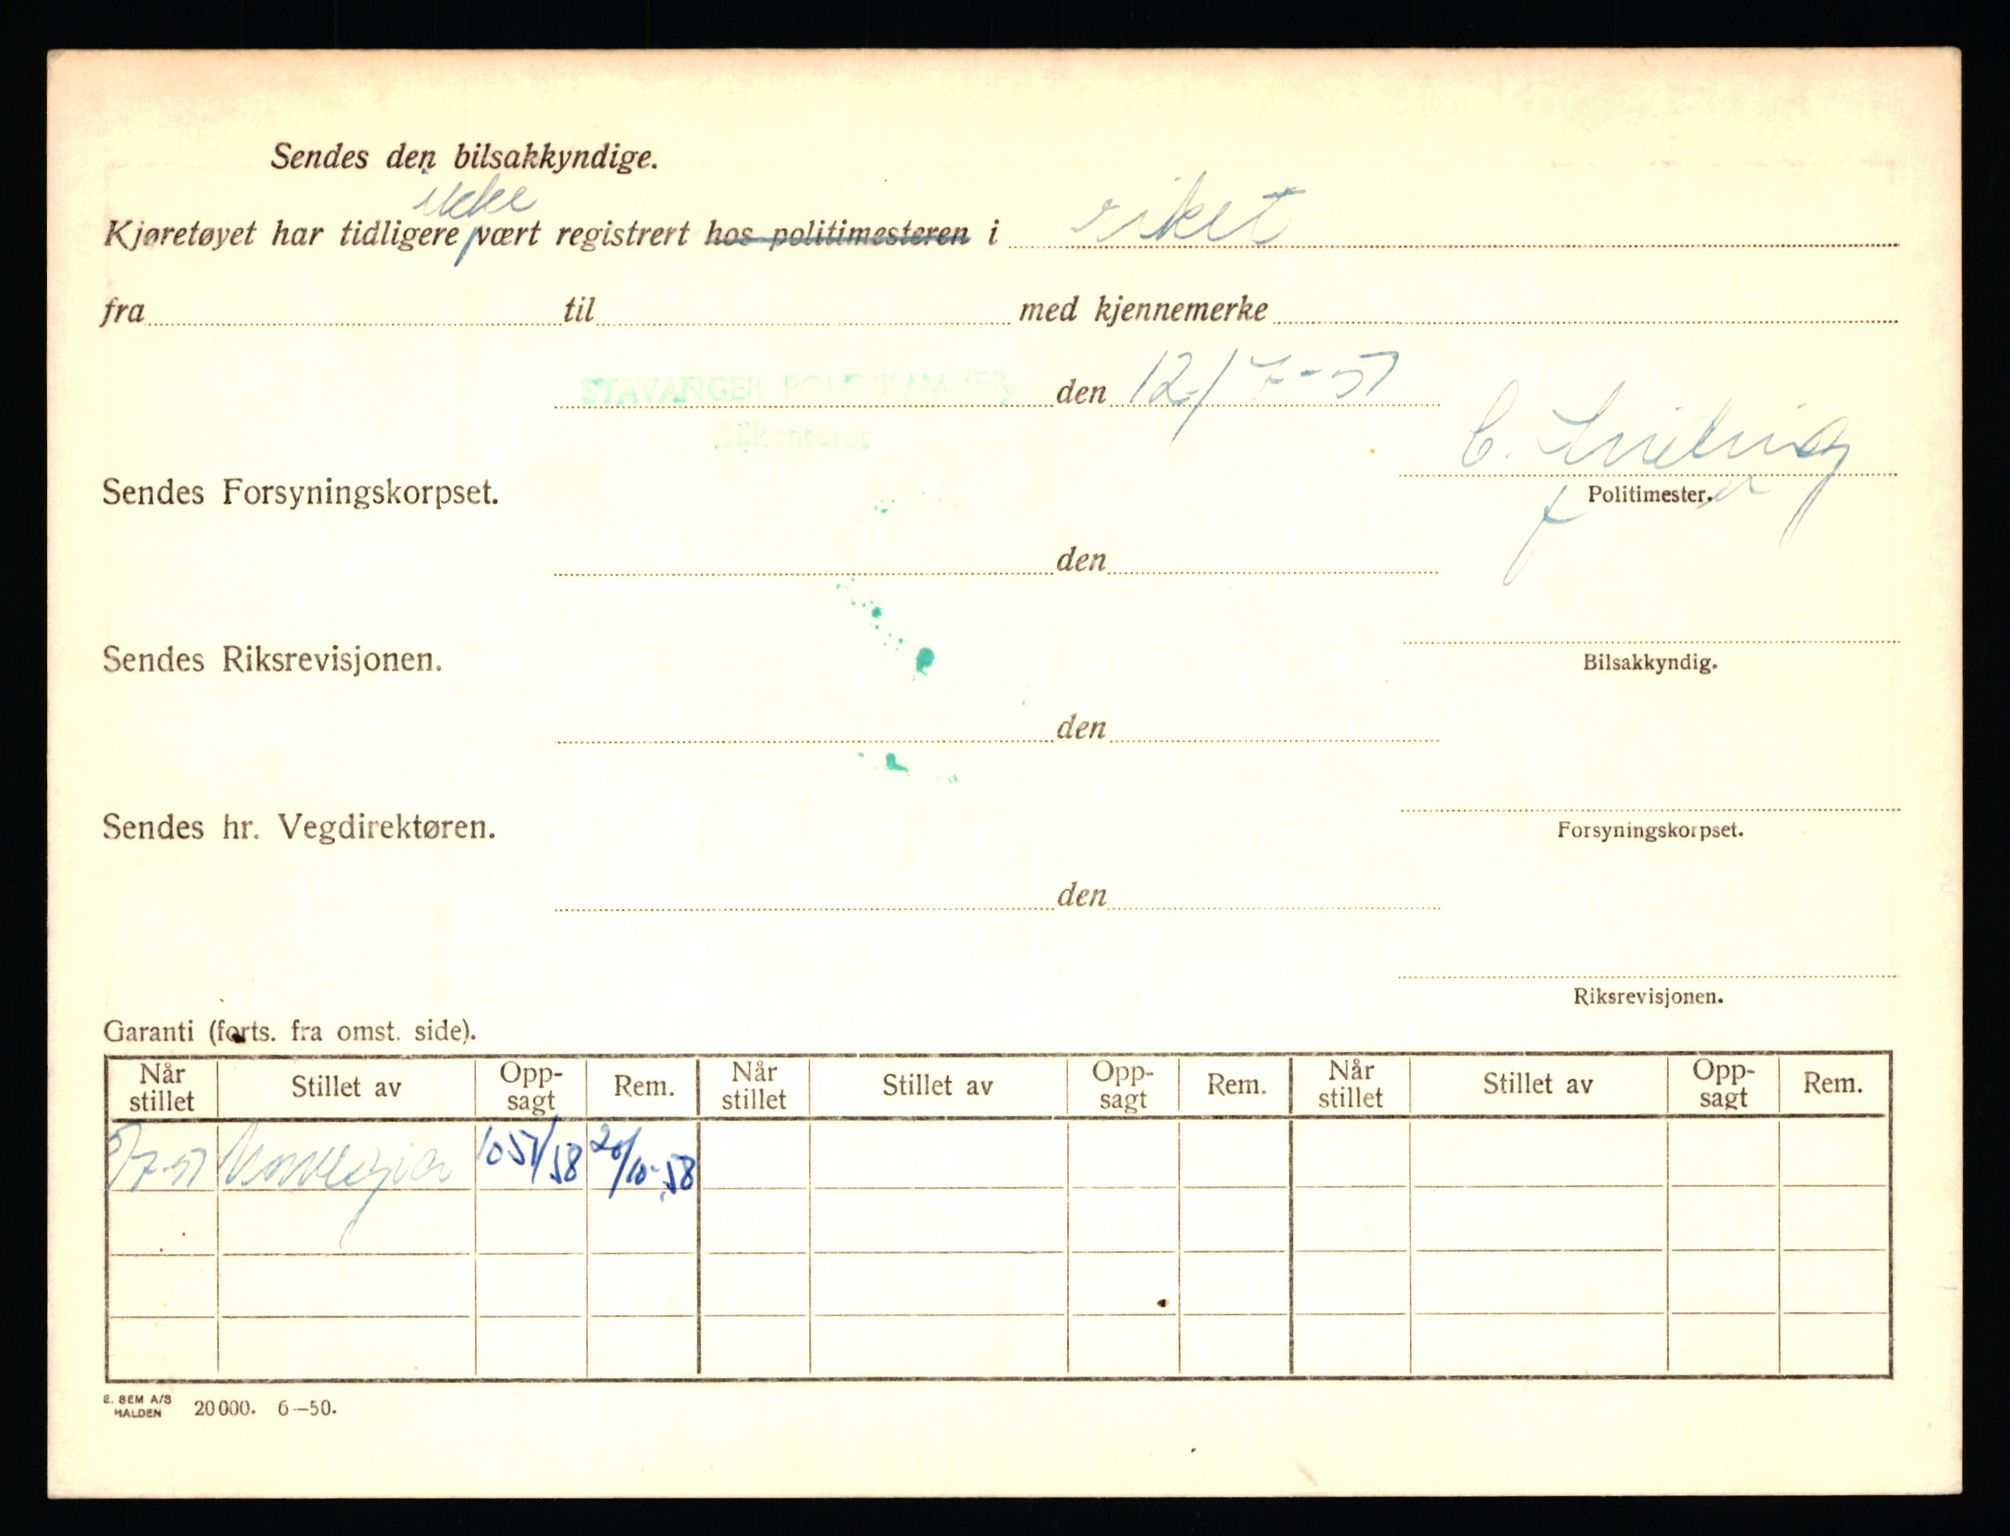 Sendes den bilsakkyndige.
ikke
Kjøretøyet har tidligere vært registrert hos politimesteren i riket
fra til med kjennemerke
STAVANGER POLITIKAMMER den 12/7-57
Bilkontoret
C.
Sendes Forsyningskorpset. Politimester.
den
Sendes Riksrevisjonen. Bilsakkyndig.
den
Sendes hr. Vegdirektøren. Forsyningskorpset.
den
Riksrevisjonen.
Garanti (forts. fra omst. side).
Når stillet Stillet av Opp-sagt Rem. Når stillet Stillet av Opp-sagt Rem. Når stillet Stillet av Opp-sagt Rem.
/7-57 Norvegia 1051/58 20/10-58
E. SEM A/S
HALDEN 20 000. 6—50.